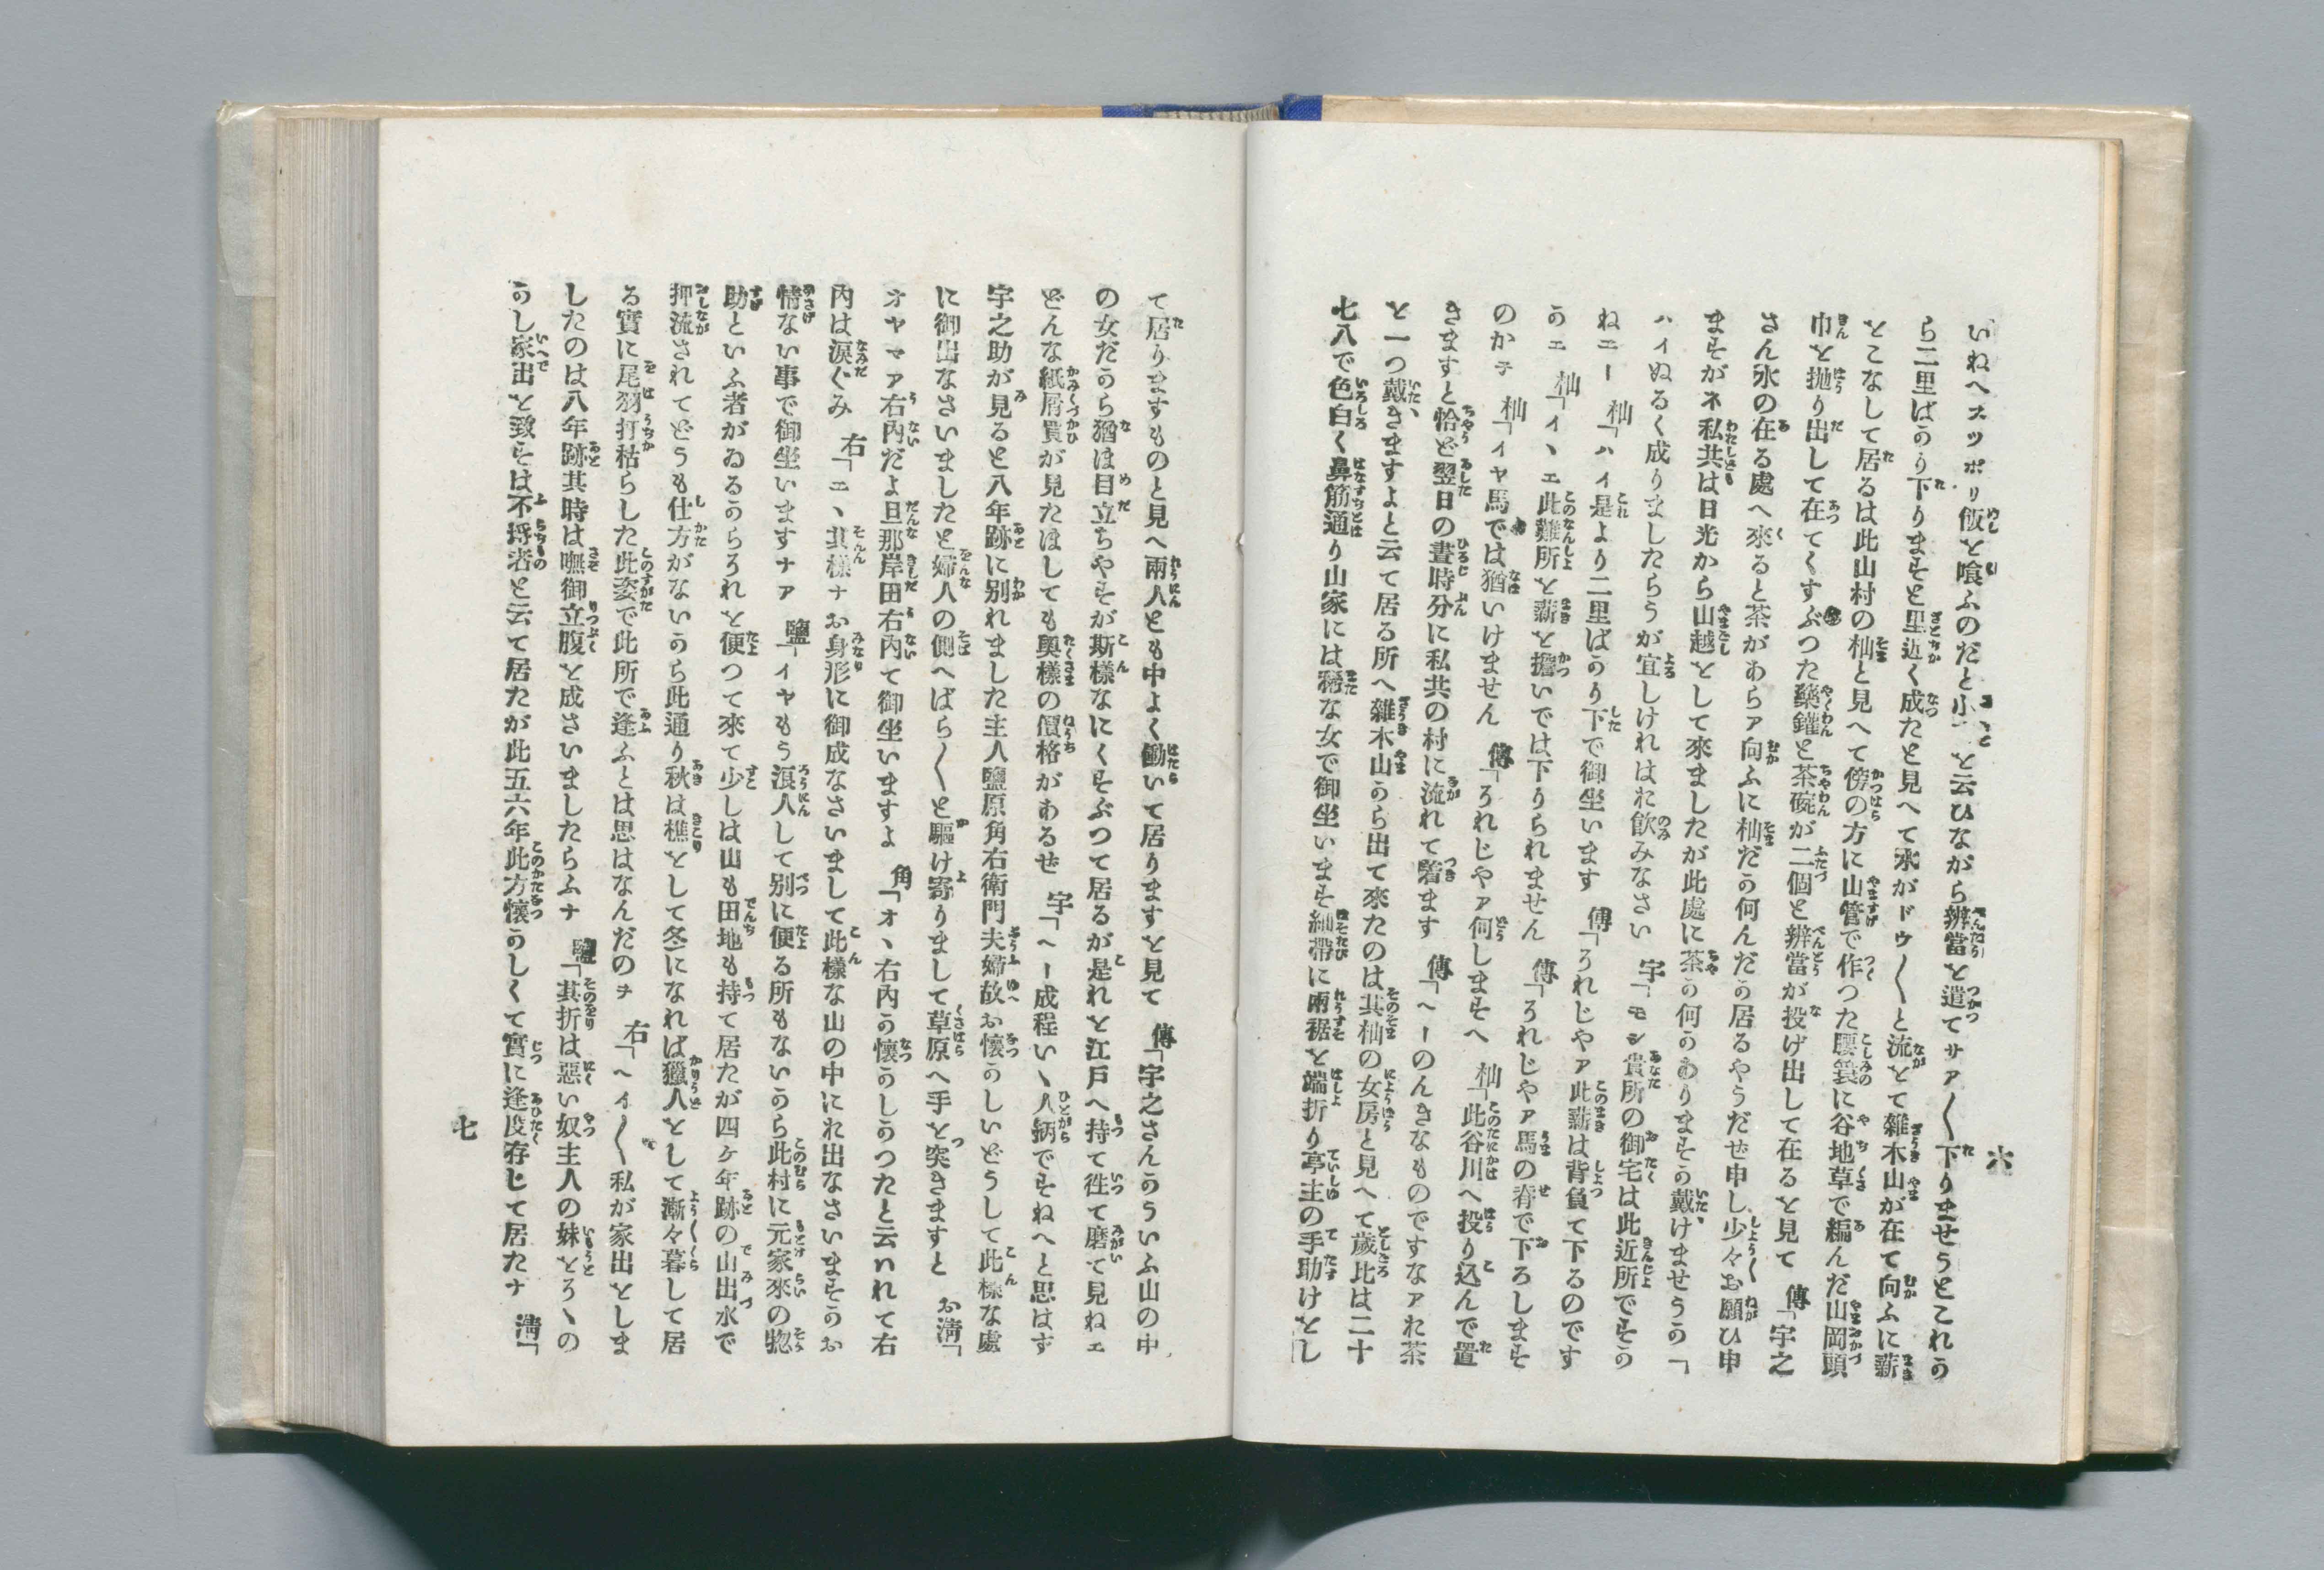 六
いねへスツポリ飯を喰ふのだと小言を云ひながら辨當を遣てサア〳〵下りませうとこれか
ら二里ばかり下りますと里近く成たと見へて水がドウ〳〵と流とて雜木山が在て向ふに薪
をこなして居るは此山村の杣と見へて傍の方に山管で作つた腰簑に谷地草で編んだ山岡頭
巾を抛り出して在てくすぶつた藥鑵と茶碗が二個と辨當が投げ出して在るを見て 傳「宇之
さん水の在る處へ來ると茶があらア向ふに杣だか何んだか居るやうだぜ申し少々お願ひ申
ますがネ私共は日光から山越をして來ましたが此處に茶か何かありますか戴けませうか「
ハイぬるく成りましたらうが宜しけれはお飮みなさい 宇「モシ貴所の御宅は此近所ですか
ねエー 杣「ハイ是より二里ばかり下で御坐います 傳「それじやア此薪は背負て下るのです
かエ 杣「イヽエ此難所を薪を擔いでは下りられません 傳「それじやア馬の脊で下ろします
のかテ 杣「イヤ馬では猶いけません 傳「それじやア何しますへ 杣「此谷川へ投り込んで置
きますと恰ど翌日の晝時分に私共の村に流れて着ます 傳「ヘーのんきなものですなアお茶
を一つ戴きますよと云て居る所へ雜木山から出て來たのは其杣の女房と見へて歳比は二十
七八で色白く鼻筋通り山家には稀な女で御坐います細帶に兩裾を端折り亭主の手助けをし
て居りますものと見へ兩人とも中よく働いて居りますを見て 傳「宇之さんかういふ山の中
の女だから猶は目立ちやすが斯樣なにくすぶつて居るが是れを江戸へ持て徃て磨て見ねエ
どんな紙屑買が見たはしても奧樣の價格があるぜ 宇「ヘー成程いヽ人柄ですねへと思はず
宇之助が見ると八年跡に別れました主人鹽原角右衛門夫婦故お懷かしいどうして此樣な處
に御出なさいましたと婦人の側へばら〳〵と驅け寄りまして草原へ手を突きますと お淸「
オヤマア右内だよ旦那岸田右内て御坐いますよ 角「オヽ右内か懷かしかつたと云れて右
内は涙ぐみ 右「エヽ其樣ナお身形に御成なさいまして此樣な山の中にお出なさいますかお
情ない事で御坐いますナア 鹽「イヤもう浪人して別に便る所もないから此村に元家來の惣
助といふ者がゐるからそれを便つて來て少しは山も田地も持て居たが四ケ年跡の山出水で
押流されてどうも仕方がないから此通り秋は樵をして冬になれば獵人をして漸々暮して居
る實に尾羽打枯らした此姿で此所で逢ふとは思はなんだのヲ 右「ヘイ〳〵私が家出をしま
したのは八年跡其時は嘸御立腹を成さいましたらふナ 鹽「其折は惡い奴主人の妹をそヽの
かし家出を致すは不埓者と云て居たが此五六年此方懷かしくて實に逢度存じて居たナ 淸「
七